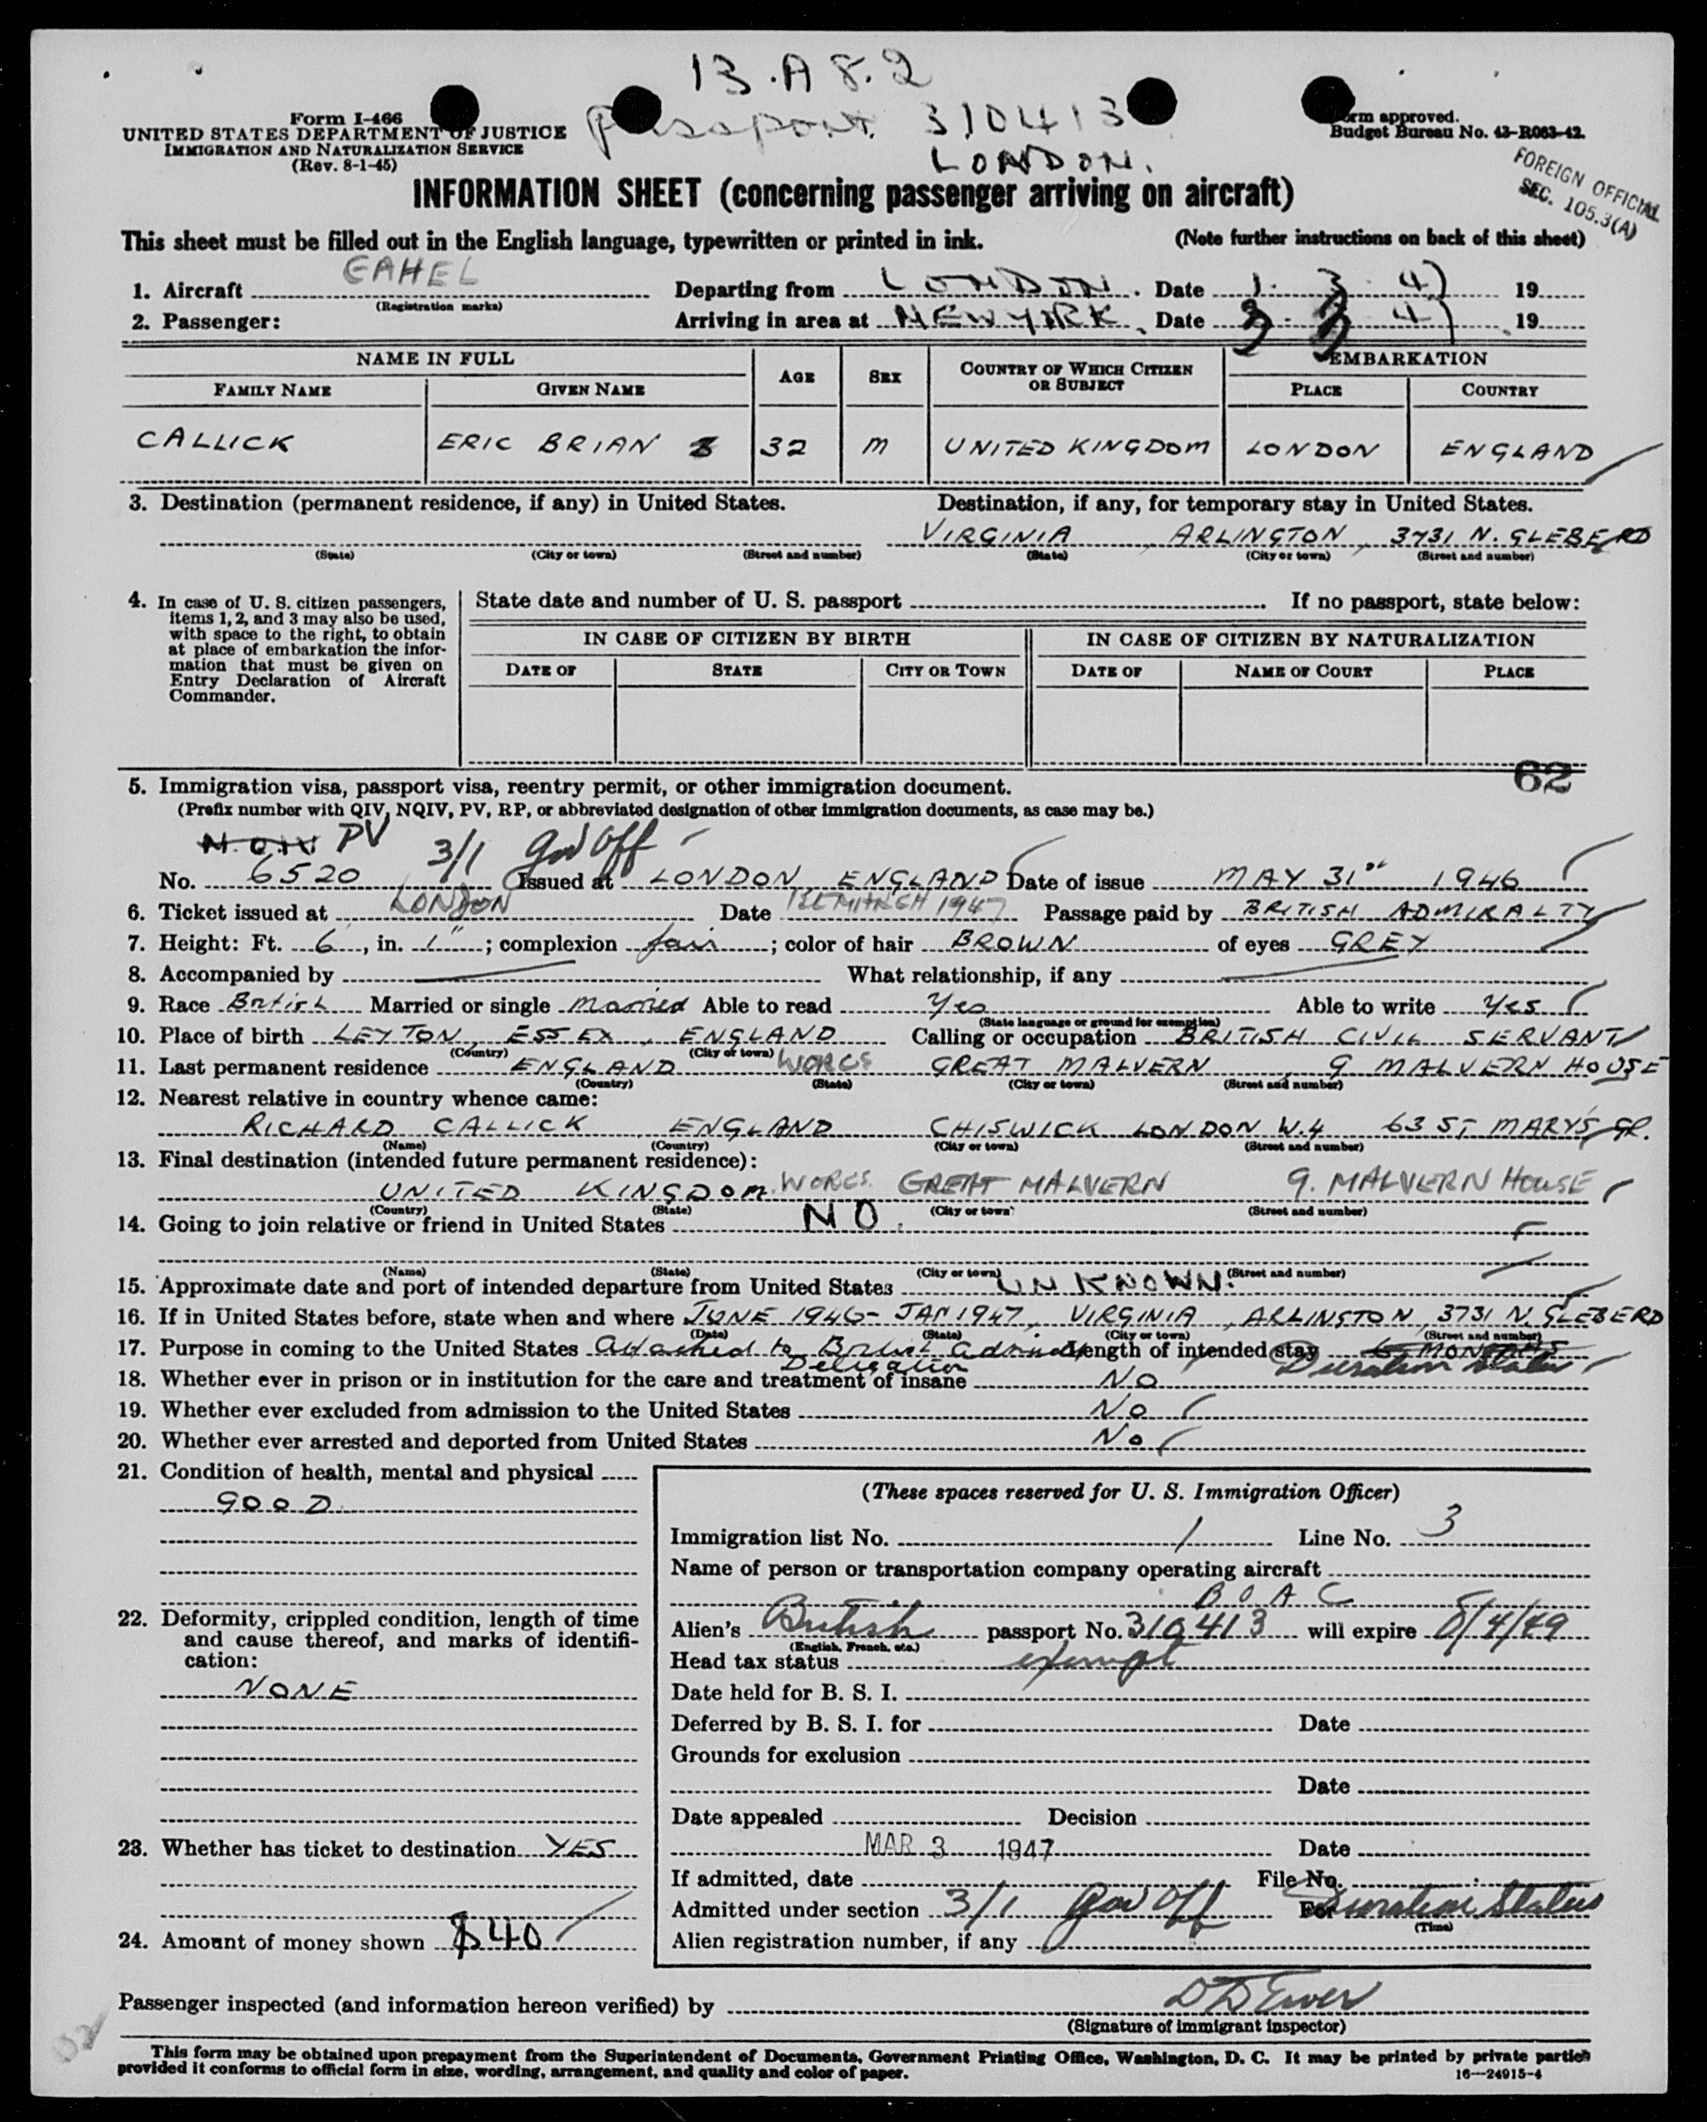 13.A 8.2
Form I-466
UNITED STATES DEPARTMENT OF JUSTICE
IMMIGRATION AND NATURALIZATION SERVICE
(Rev. 8-1-45)
Passport 310413
LONDON.
Form approved.
Budget Bureau No. 43-R063-42.
FOREIGN OFFICIAL
SEC. 105.3(A)
INFORMATION SHEET (concerning passenger arriving on aircraft)
This sheet must be filled out in the English language, typewritten or printed in ink. (Note further instructions on back of this sheet)
1. Aircraft GAHEL Departing from LONDON. Date 1. 3. 47 19
(Registration marks)
2. Passenger: Arriving in area at NEW YORK. Date 3. 3 47 19
NAME IN FULL AGE SEX COUNTRY OF WHICH CITIZEN OR SUBJECT EMBARKATION
FAMILY NAME GIVEN NAME PLACE COUNTRY
CALLICK ERIC BRIAN 32 M UNITED KINGDOM LONDON ENGLAND
3. Destination (permanent residence, if any) in United States. Destination, if any, for temporary stay in United States.
VIRGINIA, ARLINGTON, 3731 N. GLEBE RD
(State) (City or town) (Street and number) (State) (City or town) (Street and number)
4. In case of U. S. citizen passengers, items 1, 2, and 3 may also be used, with space to the right, to obtain at place of embarkation the information that must be given on Entry Declaration of Aircraft Commander.
State date and number of U. S. passport . If no passport, state below:
IN CASE OF CITIZEN BY BIRTH IN CASE OF CITIZEN BY NATURALIZATION
DATE OF STATE CITY OR TOWN DATE OF NAME OF COURT PLACE
62
5. Immigration visa, passport visa, reentry permit, or other immigration document.
(Prefix number with QIV, NQIV, PV, RP, or abbreviated designation of other immigration documents, as case may be.)
N.QIV PV 3/1 gov off
No. 6520 Issued at LONDON ENGLAND Date of issue MAY 31st 1946
6. Ticket issued at LONDON Date 1st MARCH 1947 Passage paid by BRITISH ADMIRALTY
7. Height: Ft. 6, in. 1"; complexion fair; color of hair BROWN of eyes GREY
8. Accompanied by What relationship, if any
9. Race British Married or single Married Able to read Yes Able to write Yes
(State language or ground for exemption)
10. Place of birth LEYTON, ESSEX, ENGLAND Calling or occupation BRITISH CIVIL SERVANT
(Country) (City or town)
11. Last permanent residence ENGLAND WORCS GREAT MALVERN 9 MALVERN HOUSE
(Country) (State) (City or town) (Street and number)
12. Nearest relative in country whence came:
RICHARD CALLICK, ENGLAND CHISWICK LONDON W.4 63 ST MARY'S GR.
(Name) (Country) (City or town) (Street and number)
13. Final destination (intended future permanent residence):
UNITED KINGDOM. WORCS. GREAT MALVERN 9. MALVERN HOUSE
(Country) (State) (City or town) (Street and number)
14. Going to join relative or friend in United States NO.
(Name) (State) (City or town) (Street and number)
15. Approximate date and port of intended departure from United States UNKNOWN.
16. If in United States before, state when and where JUNE 1946 - JAN 1947, VIRGINIA, ARLINGTON, 3731 N. GLEBE RD
(Date) (State) (City or town) (Street and number)
17. Purpose in coming to the United States Attached to British Admiralty Length of intended stay 6 MONTHS
Delegation Duration Status
18. Whether ever in prison or in institution for the care and treatment of insane No
19. Whether ever excluded from admission to the United States No
20. Whether ever arrested and deported from United States No
21. Condition of health, mental and physical
GOOD
22. Deformity, crippled condition, length of time and cause thereof, and marks of identification:
NONE
23. Whether has ticket to destination YES
24. Amount of money shown $40
(These spaces reserved for U. S. Immigration Officer)
Immigration list No. 1 Line No. 3
Name of person or transportation company operating aircraft
B O A C
Alien's British passport No. 310413 will expire 8/4/49
(English, French, etc.)
Head tax status exempt
Date held for B. S. I.
Deferred by B. S. I. for Date
Grounds for exclusion
Date
Date appealed Decision
MAR 3 1947 Date
If admitted, date File No.
Admitted under section 3/1 gov off For Duration Status
(Time)
Alien registration number, if any
Passenger inspected (and information hereon verified) by
(Signature of immigrant inspector)
This form may be obtained upon prepayment from the Superintendent of Documents, Government Printing Office, Washington, D. C. It may be printed by private parties
provided it conforms to official form in size, wording, arrangement, and quality and color of paper.
16—24915-4